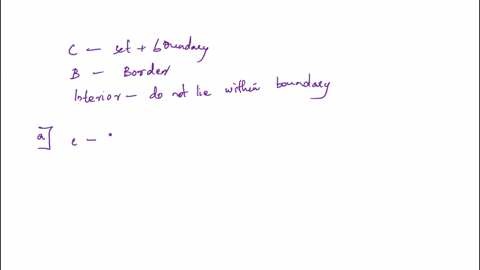 C — set + boundary
B — Border
Interior — do not lie within boundary
a] c —